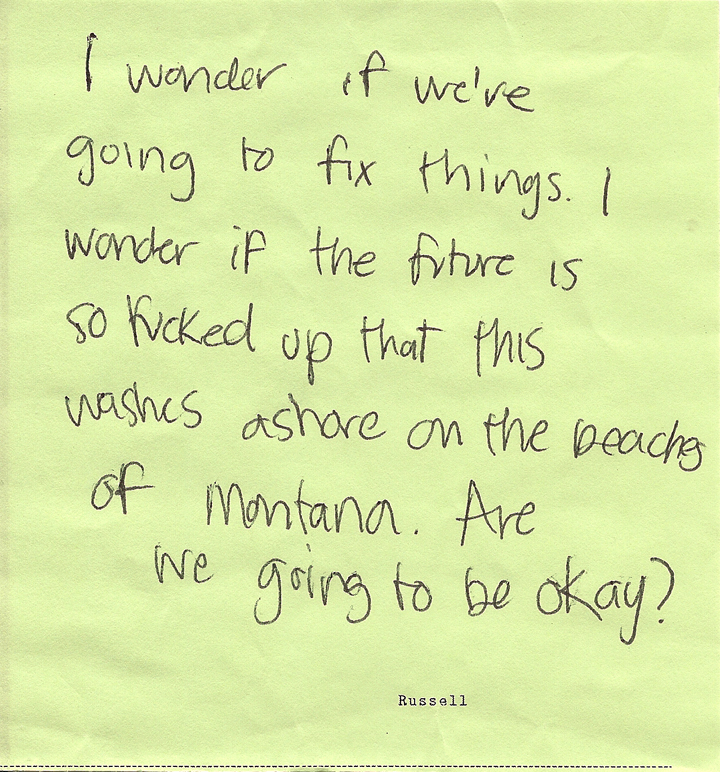 I wonder if we've
going to fix things. I
wonder if the future is
so fucked up that this
washes ashore on the beaches
of Montana. Are
we going to be okay?
Russell